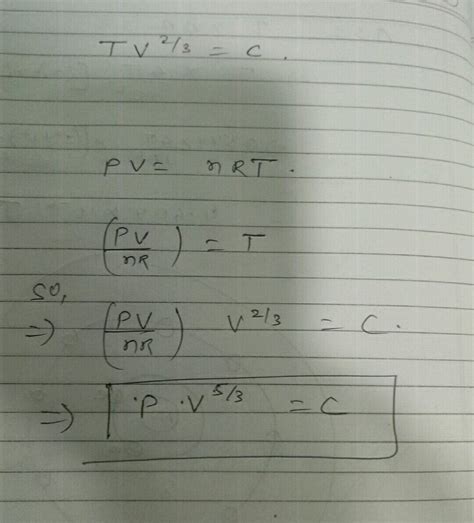 TV^{2/3} = C.
PV = nRT.
(PV/nR) = T
so,
=> (PV/nR) V^{2/3} = C.
=> ·P ·V^{5/3} = C